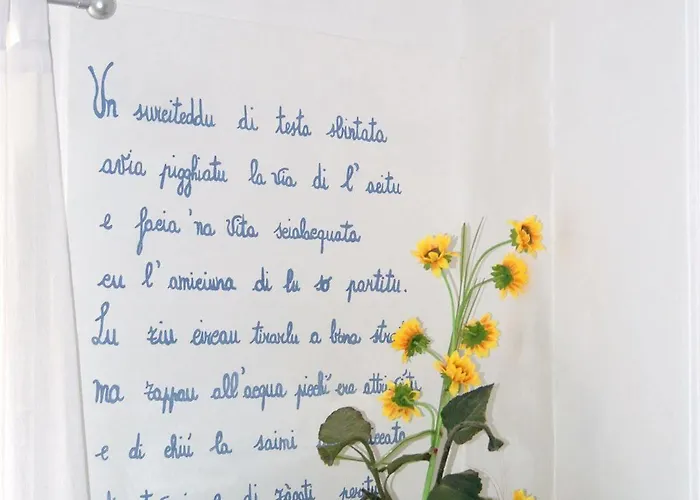 Un surciteddu di testa sbintata
avia pigghiatu la via di l'acitu
e facia 'na vita scialacquata
cu l'amiciuna di lu so partitu.
Lu ziu circau tirarlu a bona
ma zappau all'acqua picchí era
e di chiú la saimi
di